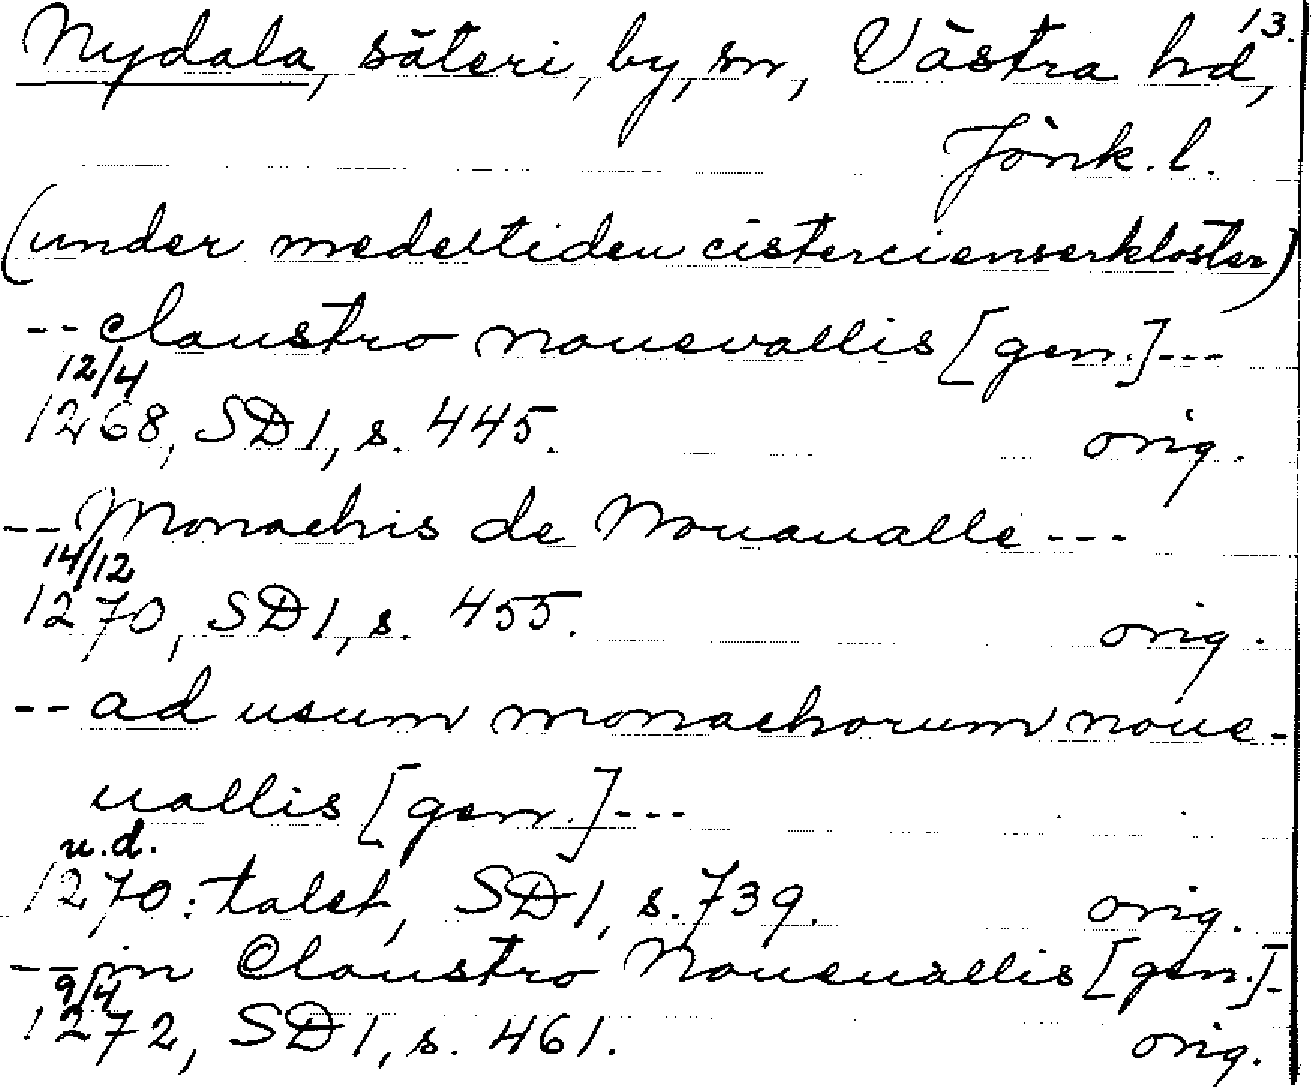 13.
Nydala, säteri, by, sn, Västra hd,
Jönk. l.
(under medeltiden cistercienserkloster)
-- claustro nouevallis [gen.] ---
12/4
1268, SD 1, s. 445. orig.
-- Monachis de Nouaualle ---
14/12
1270, SD 1, s. 455. orig.
-- ad usum monachorum noue-
uallis [gen.] ---
u.d.
1270:talet, SD 1, s. 739. orig.
-- in Claustro Noueuallis [gen.] -
9/4
1272, SD 1, s. 461. orig.